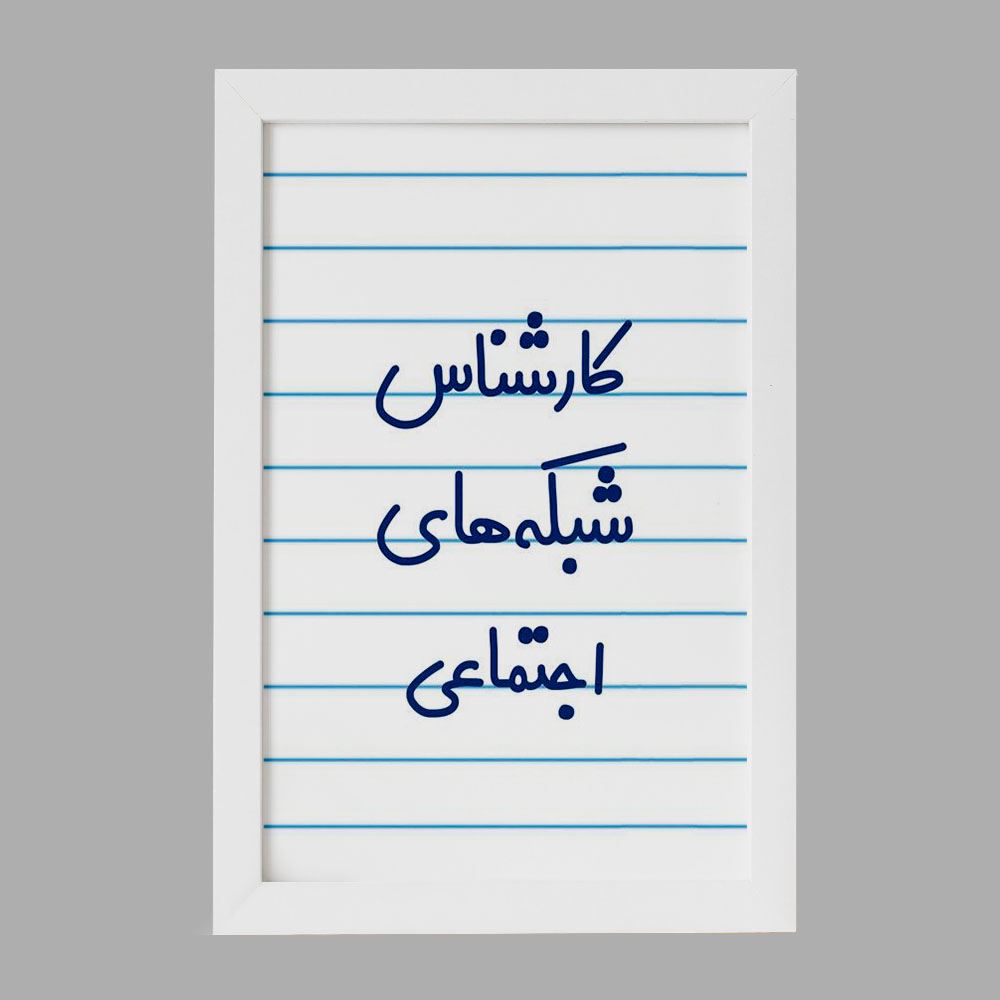 کارشناس
شبکه‌های
اجتماعی